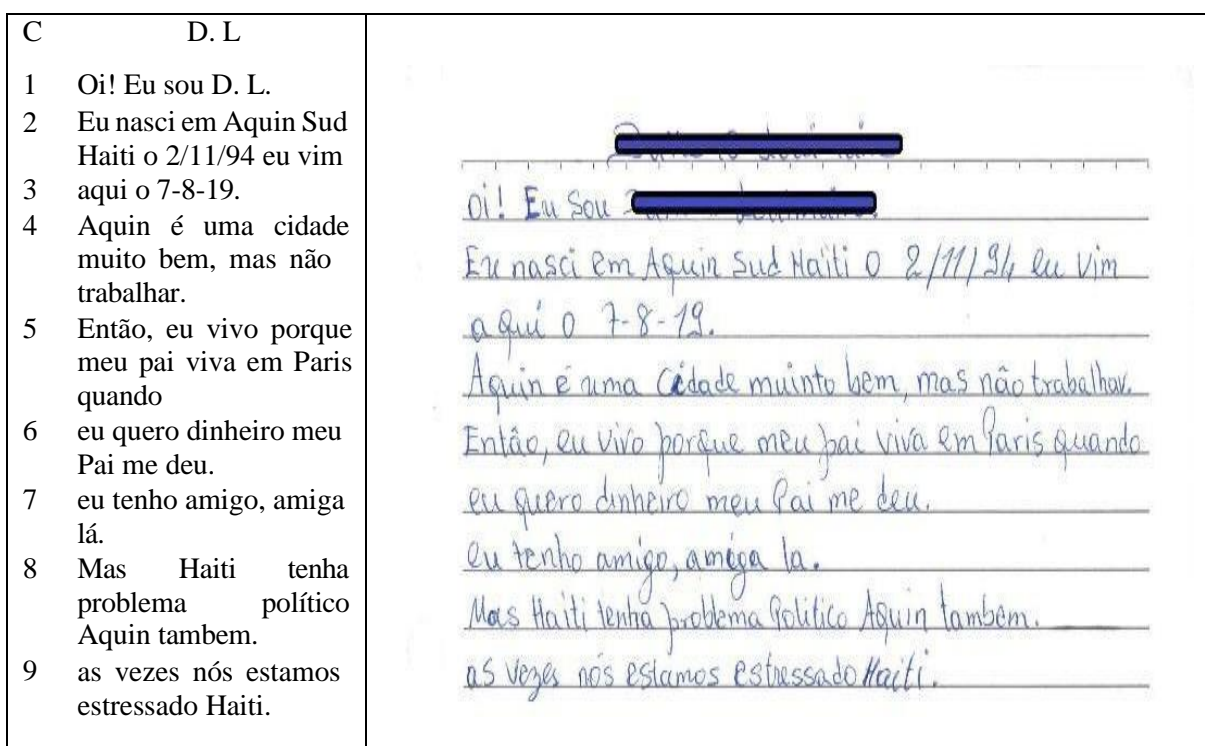 C D. L
1 Oi! Eu sou D. L.
2 Eu nasci em Aquin Sud
Haiti o 2/11/94 eu vim
3 aqui o 7-8-19.
4 Aquin é uma cidade
muito bem, mas não
trabalhar.
5 Então, eu vivo porque
meu pai viva em Paris
quando
6 eu quero dinheiro meu
Pai me deu.
7 eu tenho amigo, amiga
lá.
8 Mas Haiti tenha
problema político
Aquin tambem.
9 as vezes nós estamos
estressado Haiti.
Oi! Eu Sou
Eu nasci em Aquin Sud Haïti o 2/11/94 eu vim
aqui o 7-8-19.
Aquin é uma Cidade muinto bem, mas não trabalhar.
Então, eu vivo porque meu pai viva em Paris quando
eu quero dinheiro meu Pai me deu.
eu tenho amigo, amiga la.
Mas Haïti tenha problema Politico Aquin tambem.
as vezes nós estamos estressado Haiti.